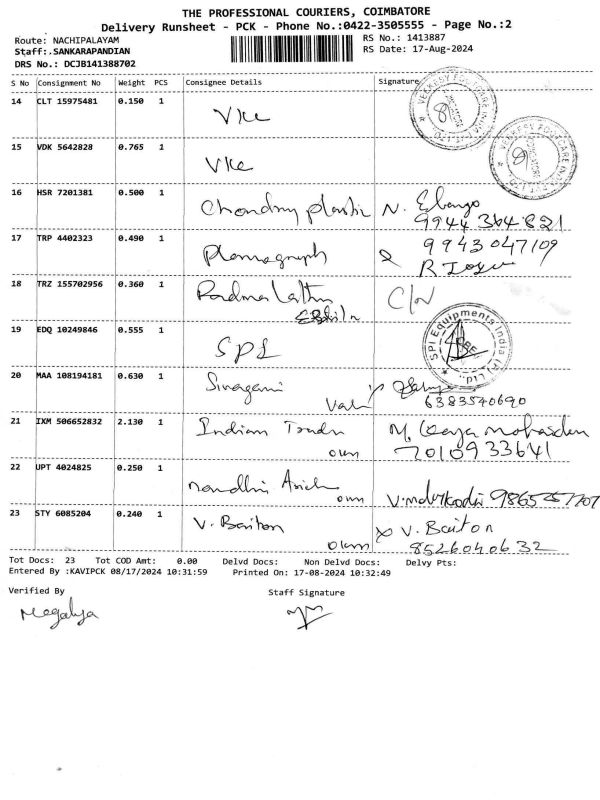 THE PROFESSIONAL COURIERS, COIMBATORE
Delivery Runsheet - PCK - Phone No.:0422-3505555 - Page No.:2
Route: NACHIPALAYAM
RS No.: 1413887
Staff: SANKARAPANDIAN
RS Date: 17-Aug-2024
DRS No.: DCJB141388702
S No Consignment No Weight PCS Consignee Details Signature
14 CLT 15975481 0.150 1 Vke
15 VDK 5642828 0.765 1 Vke
16 HSR 7201381 0.500 1 plastic N. Elango
9944364821
17 TRP 4402323 0.490 1 9943047109
R
18 TRZ 155702956 0.360 1 Padma C/N
19 EDQ 10249846 0.555 1 SPL
SPI Equipments India (P) Ltd.
20 MAA 108194181 0.630 1 Sivagami
6383540690
21 IXM 506652832 2.130 1 Indian M.
own 7010933641
22 UPT 4024825 0.250 1 nandhi
own
23 STY 6085204 0.240 1 V. Baiton x V. Baiton
own 8526040632
Tot Docs: 23 Tot COD Amt: 0.00 Delvd Docs: Non Delvd Docs: Delvy Pts:
Entered By :KAVIPCK 08/17/2024 10:31:59 Printed On: 17-08-2024 10:32:49
Verified By Staff Signature